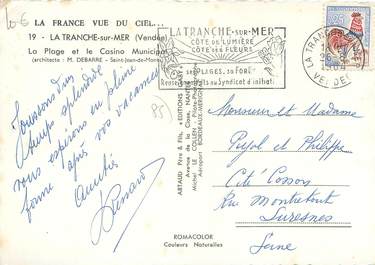 10€
LA FRANCE VUE DU CIEL...
19 - LA TRANCHE-sur-MER (Vendée)
La Plage et le Casino Municipal
(architecte : M. DEBARRE - Saint-Jean-de-Monts)
LA TRANCHE-SUR-MER
CÔTE DE LUMIÈRE
CÔTE DES FLEURS
SES PLAGES, SA FORÊT
Renseignements au Syndicat d'initiat.
LA TRANCHE
VENDÉE
0,25
85
Jouissons d'un
temps splendide
vous espérons en pleine
forme après vos vacances
Amitiés
ARTAUD Père & Fils, EDITIONS
Avenue de la Close, NANTES
Michel LE COLLEN - Pilote
Aéroport BORDEAUX-MERIGNAC
ROMACOLOR
Couleurs Naturelles
Monsieur et Madame
Pujol et Philippe
Cité Cosson
Rue Montretout
Suresnes
Seine